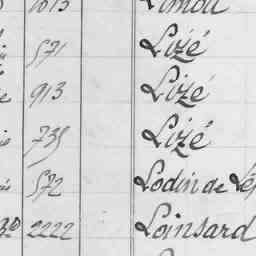 1015 Limou
571 Lizé
913 Lizé
739 Lizé
572 Lodin de
2222 Loinsard